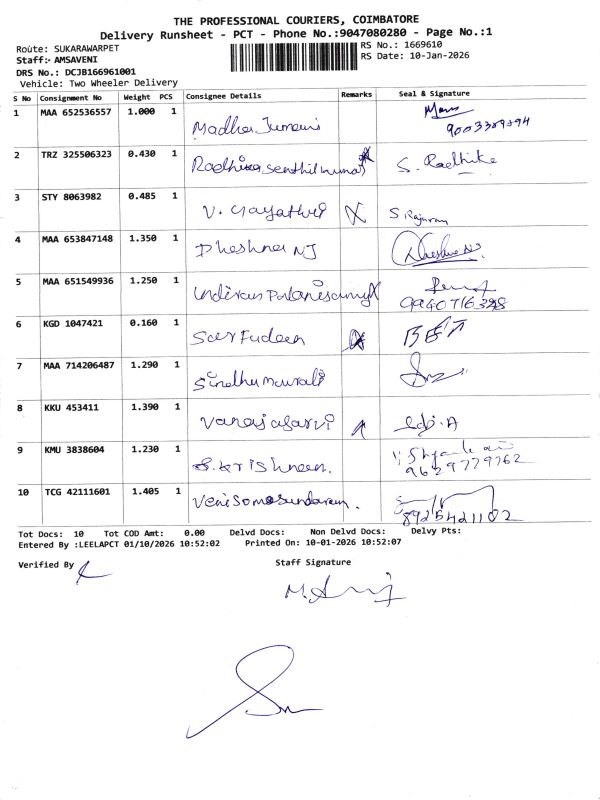 THE PROFESSIONAL COURIERS, COIMBATORE
Delivery Runsheet - PCT - Phone No.:9047080280 - Page No.:1
Route: SUKARAWARPET RS No.: 1669610
Staff:- AMSAVENI RS Date: 10-Jan-2026
DRS No.: DCJB166961001
Vehicle: Two Wheeler Delivery
S No Consignment No Weight PCS Consignee Details Remarks Seal & Signature
1 MAA 652536557 1.000 1
2 TRZ 325506323 0.430 1 Radhika senthilkumar S. Radhike
3 STY 8063982 0.485 1 V. Gayathri S Rajuram
4 MAA 653847148 1.350 1 Dheshna NJ
5 MAA 651549936 1.250 1 9940716328
6 KGD 1047421 0.160 1
7 MAA 714206487 1.290 1 Sindhu murali
8 KKU 453411 1.390 1
9 KMU 3838604 1.230 1 9629779762
10 TCG 42111601 1.405 1 Veni Somasundaram 8925421102
Tot Docs: 10 Tot COD Amt: 0.00 Delvd Docs: Non Delvd Docs: Delvy Pts:
Entered By :LEELAPCT 01/10/2026 10:52:02 Printed On: 10-01-2026 10:52:07
Verified By Staff Signature